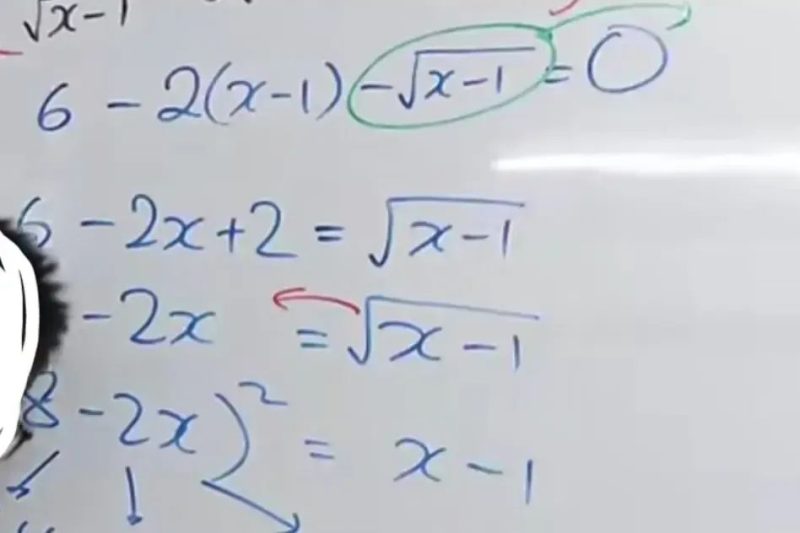 √x-1
6 - 2(x-1) - √x-1 = 0
6 - 2x + 2 = √x-1
- 2x = √x - 1
8 - 2x)² = x - 1